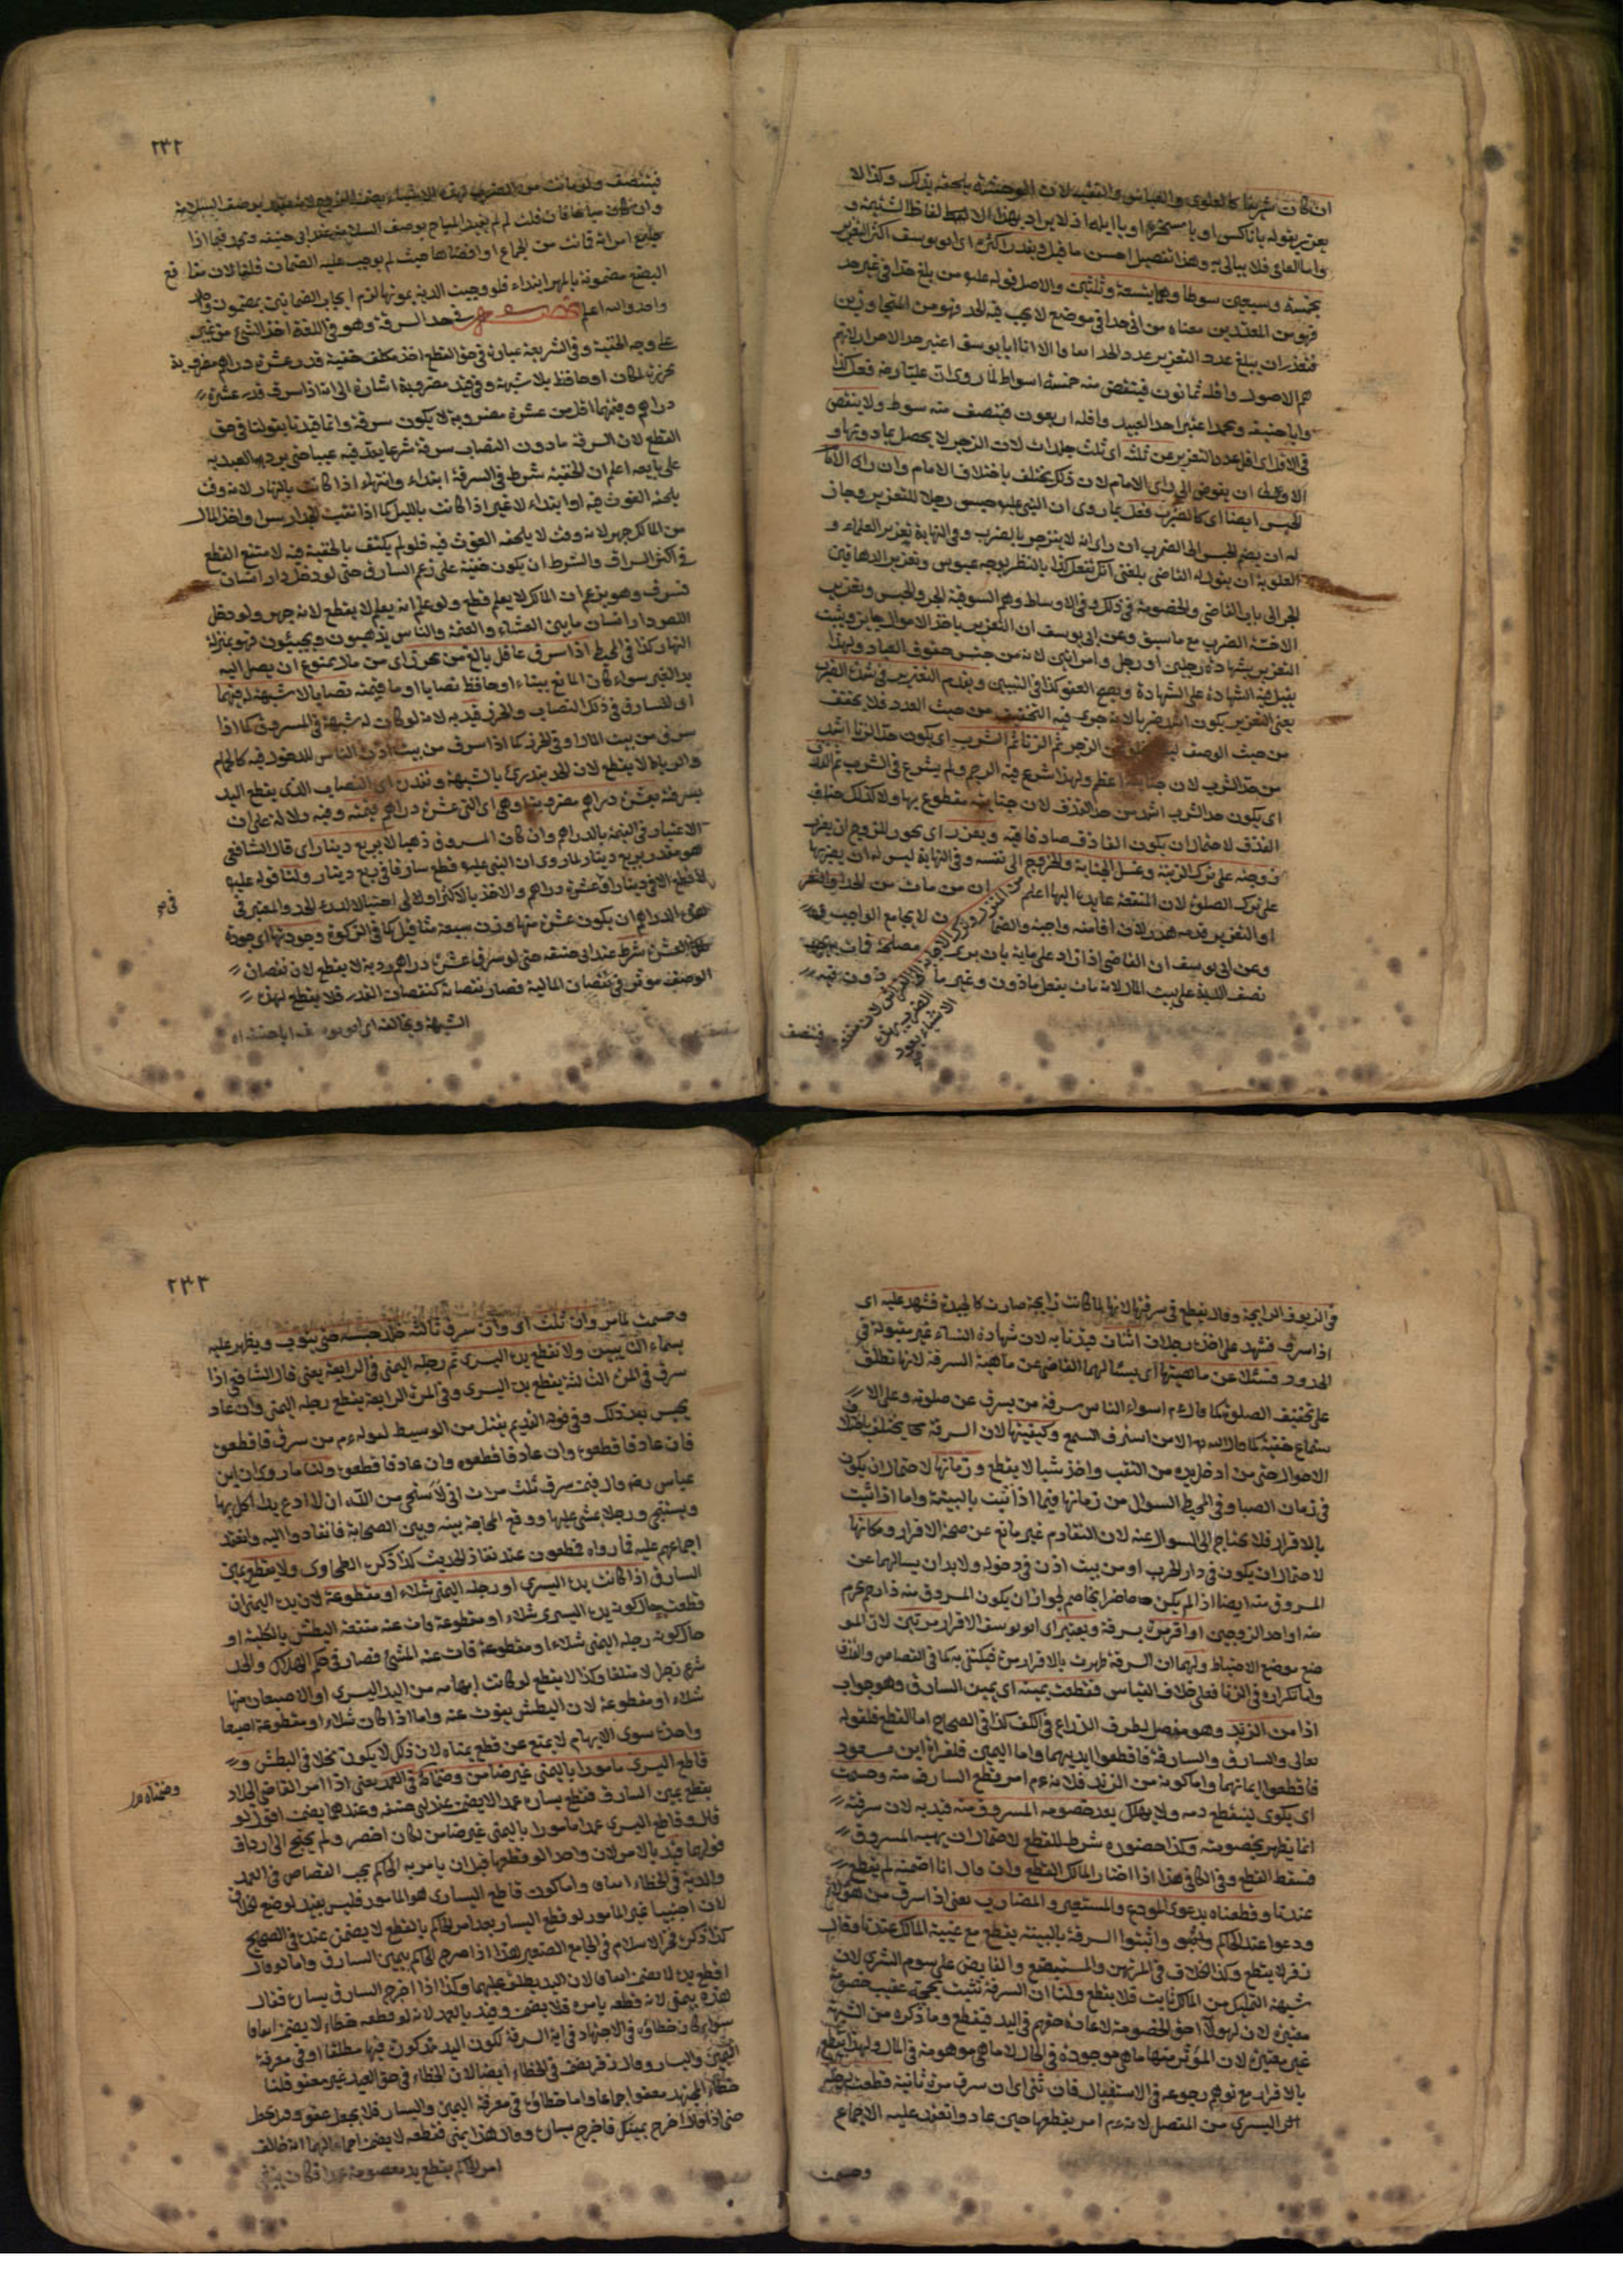 ان كان شريفا كالعلوى والعباس والفقيه لان الوحشة يلحقه بذلك وكذا لا
يعزر بقوله يا ناكس او يا مسخره او يا ابله اذ لا يراد بهذا الا
واما العامى فلا يبالى به وهذا تفصيل احسن ما قيل ويقدر اكثره اى ابو يوسف اكثر التعزير
بخمسة وسبعين سوطا وهما بتسعة وثلثين والاصل فيه قوله عليه م من بلغ حدا فى غير حد
فهو من المعتدين معناه من اتى حدا فى موضع لا يجب فيه الحد فهو من المتجاوزين
فتعذر ان يبلغ عدد التعزير عدد الحد اجماعا الا ان ابا يوسف اعتبر حد الاحرار لانهم
هم الاصول واقله ثمانون فينقص منه خمسة اسواط لما روى ان عليا رضه فعل كذا
وابا حنيفة ومحمدا اعتبرا حد العبيد واقله اربعون فينقص منه سوط ولا ينقص
فى الاقل اى اقل عدد التعزير عن ثلثة اى ثلث جلدات لان الزجر لا يحصل بما دونها و
الاولى ان يفوض الى راى الامام لان ذلك يختلف باختلاف الامام وان راى الامام
الحبس ايضا اى كالضرب فعل لما روى ان النبى عليه م حبس رجلا للتعزير وجاز
له ان يضم الحبس الى الضرب ان راى انه لا ينزجر بالضرب وفى النهاية تعزير العلماء و
العلوية ان يقول له القاضى بلغنى انك تفعل كذا بالنظر بوجه عبوس وتعزير الدهاقين
الجر الى باب القاضى والخصومة فى ذلك وفى الاوساط وهم السوقية الجر والحبس وتعزير
الاخسة الضرب مع ما سبق وعن ابى يوسف ان التعزير باخذ الاموال جايز ويثبت
التعزير بشهادة رجلين او رجل وامراتين لانه من جنس حقوق العباد ولهذا
يقبل فيه الشهادة على الشهادة ويصح العفو كذا فى التبيين ويقدم التعزير فى شدة الضرب
يعنى التعزير يكون اشد ضربا لانه جرى فيه التخفيف من حيث العدد فلا يخفف
من حيث الوصف الزجر ثم الزنا ثم الشرب اى يكون حد الزنا اشد
من حد الشرب لان جنايته اعظم ولهذا شرع فيه الرجم ولم يشرع فى الشرب ثم القذف
اى يكون حد الشرب اشد من حد القذف لان جنايته مقطوع بها ولا كذلك جناية
القذف لاحتمال ان يكون القاذف صادقا فيه ويعزر اى يجوز للزوج ان يعزر
زوجته على ترك الزينة وغسل الجنابة والخروج الى نفسه وفى النهاية ليس له ان يعزرها
على ترك الصلوة لان المنفعة عايدة اليها اعلم ان من مات من الحد والتعزير
او التعزير فدمه هدر لان اقامته واجبة والضمان لا يجامع الواجب
وعن ابى يوسف ان القاضى اذا زاد على ماية بان يرى مصلحة فمات يجب
نصف الدية على بيت المال لانه مات بفعل ماذون وغير ماذون فيه
فينتصف
٢٣٢
فينتصف ولو مات من
جامع امراته فماتت من الجماع او افضاها حيث لم يوجب عليه الضمان قلنا لان منافع
البضع مضمونة بالمهر ابتداء فلو وجبت الدية بموتها لزم ايجاب الضمانين بمضمون
واحد والله اعلم فصل فى حد السرقة وهو فى اللغة اخذ الشئ من غير
على وجه الخفية وفى الشريعة عبارة فى حق القطع اخذ مكلف خفية قدر عشرة دراهم مضروبة
محرزة بمكان او حافظ بلا شبهة وفى قيد مضروبة اشارة الى انه اذا سرق قدر عشرة
دراهم وقيمتها اقل من عشرة مضروبة لا يكون سرقة وانما قيدنا بقولنا فى حق
القطع لان السرقة ما دون النصاب سرقة شرعا يعد فيه عيبا حتى يرد به العبد
على بايعه اعلم ان الخفية شرط فى السرقة ابتداء وانتهاء اذا كانت بالنهار لانه وقت
يلحقه الغوث فيه او ابتداء لا غير اذا كانت بالليل كما اذا نقب الجدار سرا واخذ المال
من المالك جهرا لانه وقت لا يلحقه الغوث فيه فلو لم يكتف بالخفية فيه لامتنع القطع
فى اكثر السراق والشرط ان يكون خفية على زعم السارق حتى لو دخل دار انسان
فسرق وهو يزعم ان المالك لا يعلم قطع ولو علم انه يعلم لا يقطع لانه جهر ولو دخل
اللص دار انسان ما بين العشاء والعتمة والناس يذهبون ويجيئون فهو بمنزلة
النهار كذا فى المحيط اذا سرق عاقل بالغ من محرز اى من مال ممنوع ان يصل اليه
يد الغير سواء كان المانع ببناء او حافظ نصابا او ما قيمته نصابا لا شبهة له فيهما
اى للسارق فى ذلك النصاب والحرز قيد به لانه لو كانت له شبهة فى المسروق كما اذا
سرق من بيت المال او فى الحرز كما اذا سرق من بيت اذن الناس للدخول فيه كالحمام
والرباط لا يقطع لان الحد يندرئ بالشبهة ونقدره اى النصاب الذى يقطع اليد
بسرقة بعشرة دراهم مضروبة وهى اى التى عشرة دراهم قيمته وفيه دلالة على ان
الاعتبار فى القيمة بالدراهم وان كان المسروق ذهبا لا بربع دينار اى قال الشافعى
هو مقدر بربع دينار لما روى ان النبى عليه م قطع سارقا فى ربع دينار ولنا قوله عليه م
لا قطع الا فى دينار او عشرة دراهم والاخذ بالاكثر اولى احتيالا لدرء الحد والمعتبر فى
هذه الدراهم ان يكون عشرة منها وزن سبعة مثاقيل كما فى الزكوة وجودتها اى جودة
هذه العشرة شرط عند ابى حنيفة حتى لو سرق عشرة دراهم ردية لا يقطع لان نقصان
الوصف موثر فى نقصان المالية فصار نقصانه كنقصان القدر فلا يقطع لهذه
الشبهة ويخالفه اى ابو يوسف ابا حنيفة
فى الزيوف الرايجة وقال يقطع فى سرقتها لانها لما كانت رايجة صارت كالجيدة فشهد عليه اى
اذا سرق فشهد على اخذه رجلان اثنان قيدنا به لان شهادة النساء غير مقبولة فى
الحدود فسئلا عن ماهيتها اى يسألهما القاضى عن ماهية السرقة لانها تطلق
على تخفيف الصلوة كما قال عم اسواء الناس سرقة من يسرق عن صلوته وعلى الا
ستماع خفية كما قال الله تع الا من استرق السمع وكيفيتها لان السرقة مما يختلف باختلاف
الاحوال حتى من ادخل يده من النقب واخذ شيا لا يقطع وزمانها لاحتمال ان يكون
فى زمان الصبا وفى المحيط السوال من زمانها فيما اذا ثبت بالبينة واما اذا ثبت
بالاقرار فلا يحتاج الى السوال عنه لان التقادم غير مانع عن صحة الاقرار ومكانها
لاحتمال ان يكون فى دار الحرب او من بيت اذن فى دخوله ولا بد ان يسالهما عن
المسروق منه ايضا اذا لم يكن حاضرا يخاصم لجواز ان يكون المسروق منه ذا رحم محرم
منه او احد الزوجين او اقر مرة بسرقة ويعتبر اى ابو يوسف الاقرار مرتين لان المو
ضع موضع الاحتياط ولهما ان السرقة ظهرت بالاقرار مرة فيكتفى به كما فى القصاص والقذف
واما تكراره فى الزنا فعلى خلاف القياس فقطعت يمينه اى يمين السارق وهو جواب
اذا من الزند وهو مفصل طرف الذراع فى الكف كذا فى الصحاح اما القطع فلقوله
تعالى والسارق والسارقة فاقطعوا ايديهما واما اليمين فلقراة ابن مسعود
فاقطعوا ايمانهما واما كونه من الزند فلانه عم امر بقطع السارق منه وحسمت
اى يكوى لينقطع دمه ولا يهلك بعد خصومة المسروق منه قيد به لان سرقته
انما يظهر بخصومته وكذا حضوره شرط للقطع لاحتمال ان يهبه المسروق
فسقط القطع وفى الكافى هذا اذا اختار المالك القطع وان قال انا اضمنه لم يقطع
عندنا وقطعناه بدعوى المودع والمستعير والمضارب يعنى اذا سرق من هؤلاء
ودعوا عند الحاكم واثبتوا السرقة بالبينة يقطع مع غيبة المالك عندنا وقال
زفر لا يقطع وكذا الخلاف فى المرتهن والمستبضع والقابض على سوم الشرى لان
شبهة التمليك من المالك ثابت فلا يقطع ولنا ان السرقة ثبتت بحجة عقيب خصومة
معتبرة لان لهولاء حق الخصومة لاعادة حقهم فى اليد فيقطع وما ذكره من الشبهة
غير معتبرة لان الموثر منها ما هى موجودة فى الحال لا ما هى موهومة فى المال ولهذا يقطع
بالاقرار مع توهم رجوعه فى الاستقبال فان ثنى اى ان سرق مرة ثانية قطعت رجله
اليسرى من المفصل لانه عم امر بقطعها حين عاد وانعقد عليه الاجماع
وحسمت
٢٣٣
وحسمت لما مر وان ثلث اى وان سرق ثالثة خلد حبسه حتى يتوب ويظهر عليه
سيماء التائبين ولا نقطع يده اليسرى ثم رجله اليمنى فى الرابعة يعنى قال الشافعى اذا
سرق فى المرة الثالثة يقطع يده اليسرى وفى المرة الرابعة يقطع رجله اليمنى وان عاد
يحبس بعد ذلك وفى قوله القديم يقتل من الوسيط لقوله عم من سرق فاقطعوه
فان عاد فاقطعوه وان عاد فاقطعوه وان عاد فاقطعوه ولنا ما روى ان ابن
عباس رضه قال فيمن سرق ثلث مرات انى لاستحى من الله ان لا ادع يدا ياكل بها
ويستنجى ورجلا يمشى عليها ووقع المحاجة بينه وبين الصحابة فانقادوا اليه وانعقد
اجماعهم عليه فما رواه مطعون عند نقاد الحديث كذا ذكره الطحاوى ولا يقطع يمين
السارق اذا كانت يده اليسرى او رجله اليمنى شلاء او مقطوعة لان يده اليمنى ان
قطعت حال كون يده اليسرى شلاء او مقطوعة فات عنه منفعة البطش بالكلية او
حال كون رجله اليمنى شلاء او مقطوعة فات عنه المشى فصار فى حكم الهلاك والحد
شرع زجرا لا متلفا وكذا لا يقطع لو كانت ابهامه من اليد اليسرى او الاصبعان منها
شلاء او مقطوعة لان البطش يفوت عنه واما اذا كان شلاء او مقطوعة اصبعا
واحدة سوى الابهام لا يمنع عن قطع يمناه لان ذلك لا يكون مخلا فى البطش و
قاطع اليسرى مامورا باليمنى غير ضامن وضمناه فى العمد يعنى اذا امر القاضى الجلاد
بقطع يمين السارق فقطع يساره عمدا لا يضمن عند ابى حنيفة وعندهما يضمن اقول لو
قال وقاطع اليسرى عمدا مامورا باليمنى غير ضامن لكان اخصر ولم يحتج الى ارداف
قولهما قيد بالامر لان واحدا لو قطعها قبل ان يامر به الحاكم يجب القصاص فى العمد
والدية فى الخطاء اتفاقا واما كون قاطع اليسارى هو المامور فليس بقيد لوضع الخلاف
لان اجنبيا غير المامور لو قطع اليسار بعد امر الحاكم بالقطع لا يضمن عنده فى الصحيح
كذا ذكره فخر الاسلام فى الجامع الصغير هذا اذا صرح الحاكم بيمين السارق واما لو قال
اقطع يده لا يضمن اتفاقا لان اليد يطلق عليهما وكذا اذا اخرج السارق يساره فقال
هذه يمينى لانه قطعه بامره فلا يضمن وقيد بالعمد لانه لو قطعه خطاء لا يضمن اتفاقا
سواء كان خطاؤه فى الاجتهاد فى اية السرقة لكون اليد مذكورة فيها مطلقا او فى معرفة
اليمين واليسار وقال زفر يضمن فى الخطاء ايضا لان الخطاء فى حق العبد غير معفو قلنا
خطاء المجتهد معفو اجماعا واما خطاؤه فى معرفة اليمين واليسار فلا يجعل عفوا
حتى اذا قال اخرج يمينك فاخرج يساره وقال هذا يمنى فقطعه لا يضمن اجماعا لهما انه خالف
امر الحاكم بقطع يد معصومة عمدا فكان ينبغى